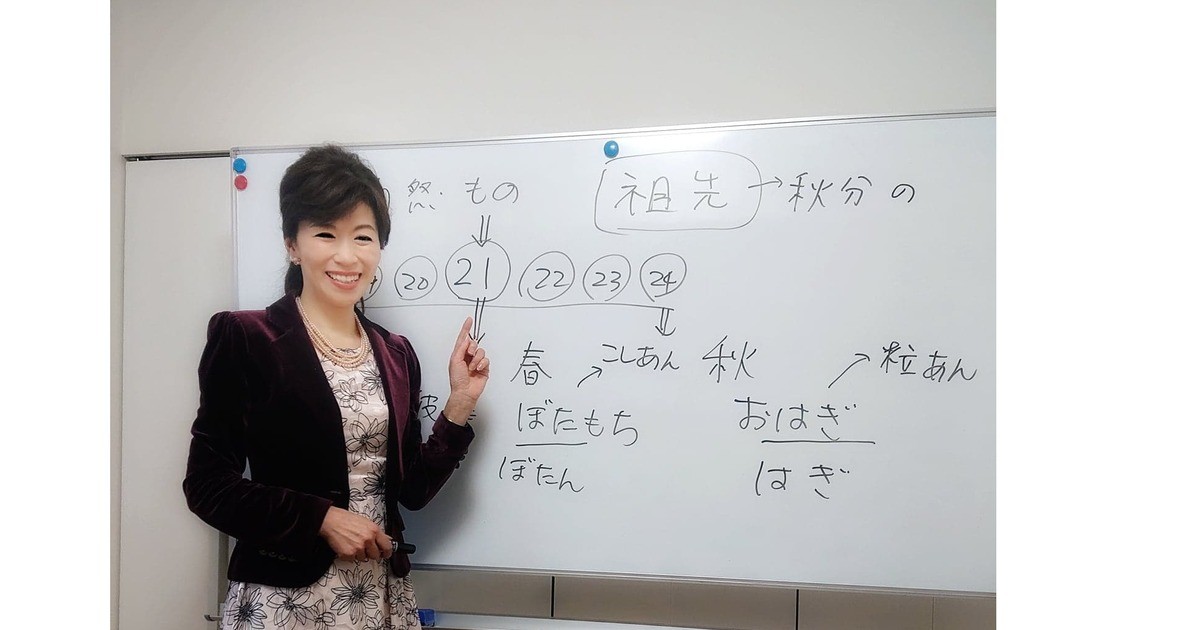 もの 祖先 → 秋分の
20 21 22 23 24
春 こしあん 秋 粒あん
ぼたもち おはぎ
ぼたん はぎ